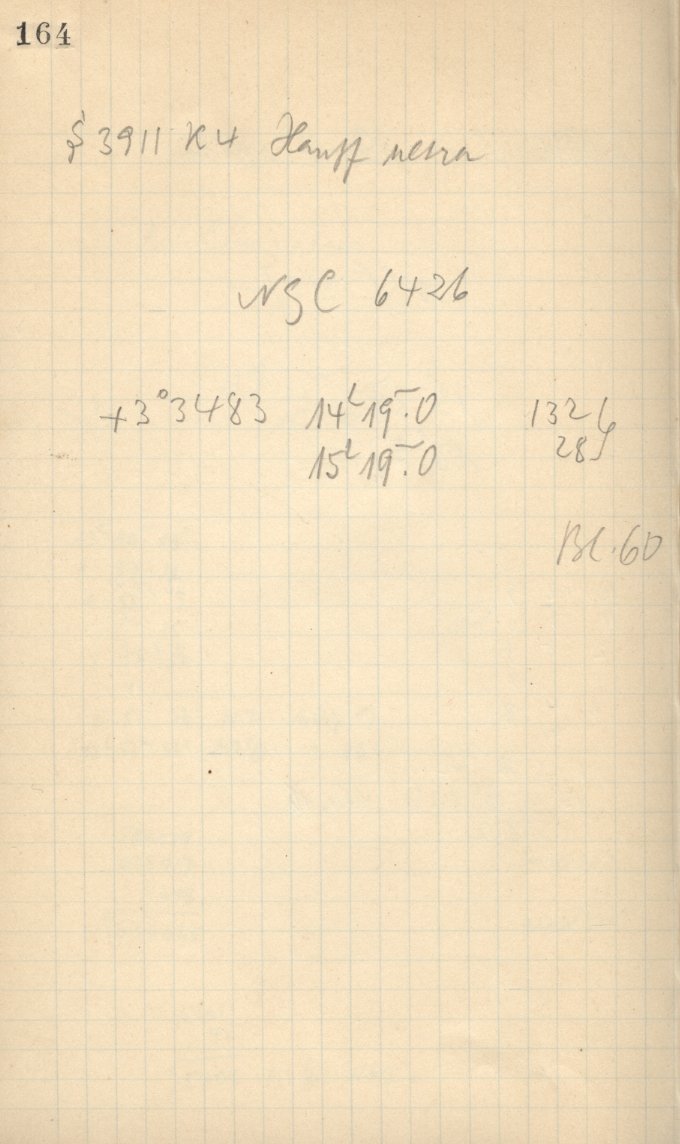 164
§ 3911 K4 Hauff ultra
NGC 6426
+3°3483 14ʰ19ᵐ.0 132
15ʰ19ᵐ.0 28
Bl. 60